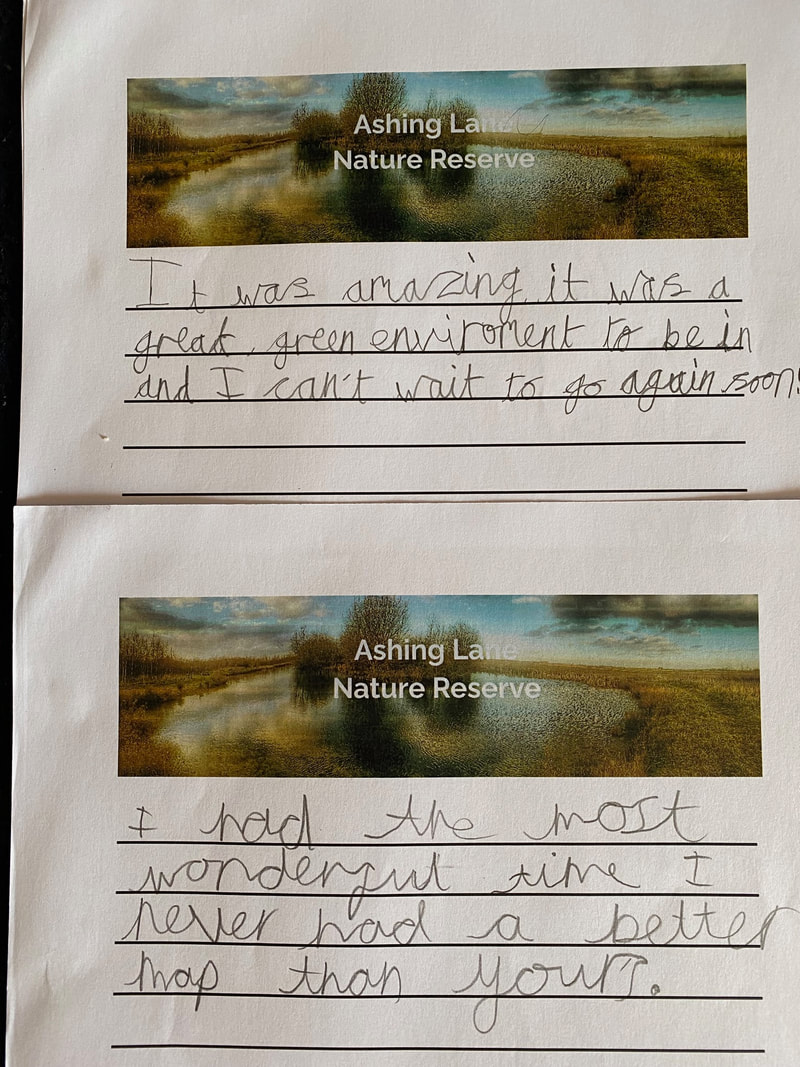 Ashing Lane
Nature Reserve
It was amazing it was a
great green enviroment to be in
and I can't wait to go again soon!
Ashing Lane
Nature Reserve
I had the most
wonderful time I
never had a better
map than yours.